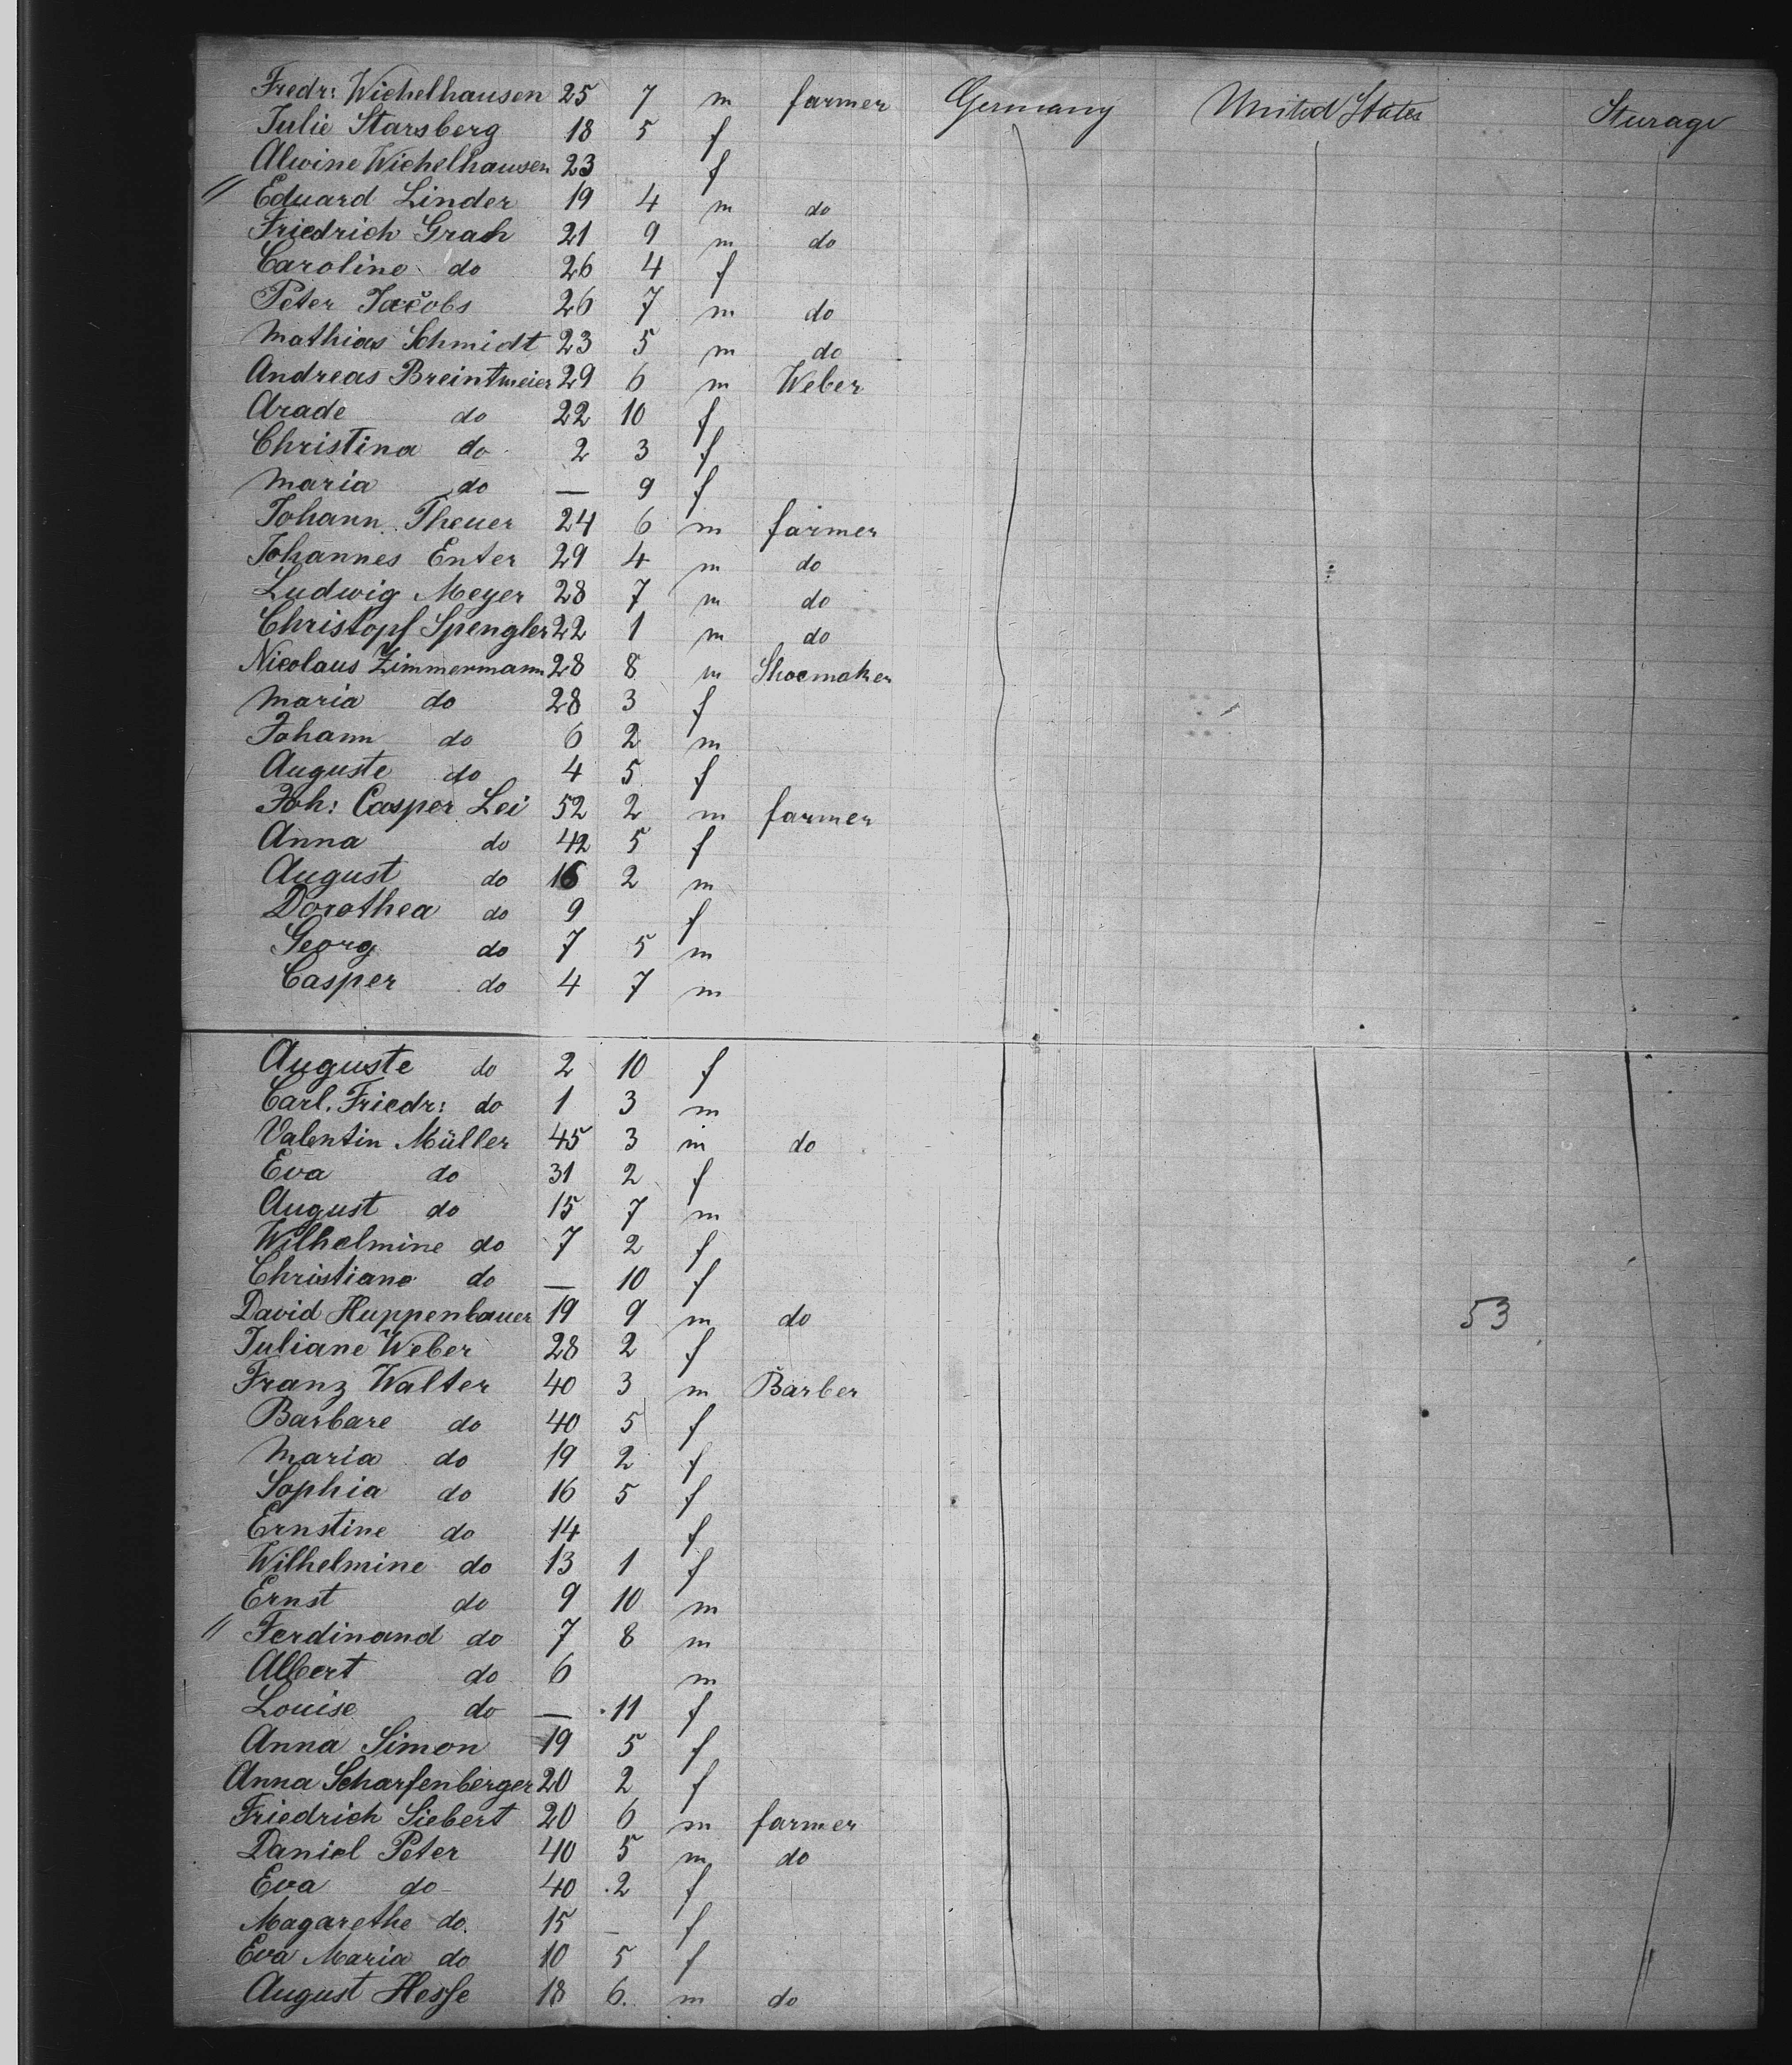 Fredr: Wichelhausen 25 7 m farmer Germany United States Sturage
Julie Starsberg 18 5 f
Alwine Wichelhausen 23 f
" Eduard Linder 19 4 m do
Friedrich Grah 21 9 m do
Caroline do 26 4 f
Peter Jacobs 26 7 m do
Mathias Schmidt 23 5 m do
Andreas Breintmeier 29 6 m Weber
Arade do 22 10 f
Christina do 2 3 f
Maria do — 9 f
Johann Theuer 24 6 m farmer
Johannes Enter 29 4 m do
Ludwig Meyer 28 7 m do
Christopf Spengler 22 1 m do
Nicolaus Zimmermann 28 8 m Shoemaker
Maria do 28 3 f
Johann do 6 2 m
Auguste do 4 5 f
Joh: Casper Lei 52 2 m farmer
Anna do 42 5 f
August do 16 2 m
Dorothea do 9 f
Georg do 7 5 m
Casper do 4 7 m
Auguste do 2 10 f
Carl. Friedr: do 1 3 m
Valentin Müller 45 3 m do
Eva do 31 2 f
August do 15 7 m
Wilhelmine do 7 2 f
Christiane do — 10 f
David Huppenbauer 19 9 m do 53
Juliane Weber 28 2 f
Franz Walter 40 3 m Barber
Barbare do 40 5 f
Maria do 19 2 f
Sophia do 16 5 f
Ernstine do 14 f
Wilhelmine do 13 1 f
Ernst do 9 10 m
" Ferdinand do 7 8 m
Albert do 6 m
Louise do — 11 f
Anna Simon 19 5 f
Anna Scharfenberger 20 2 f
Friedrich Siebert 20 6 m farmer
Daniel Peter 40 5 m do
Eva do 40 2 f
Magarethe do. 15 — f
Eva Maria do 10 5 f
August Hesse 18 6. m do